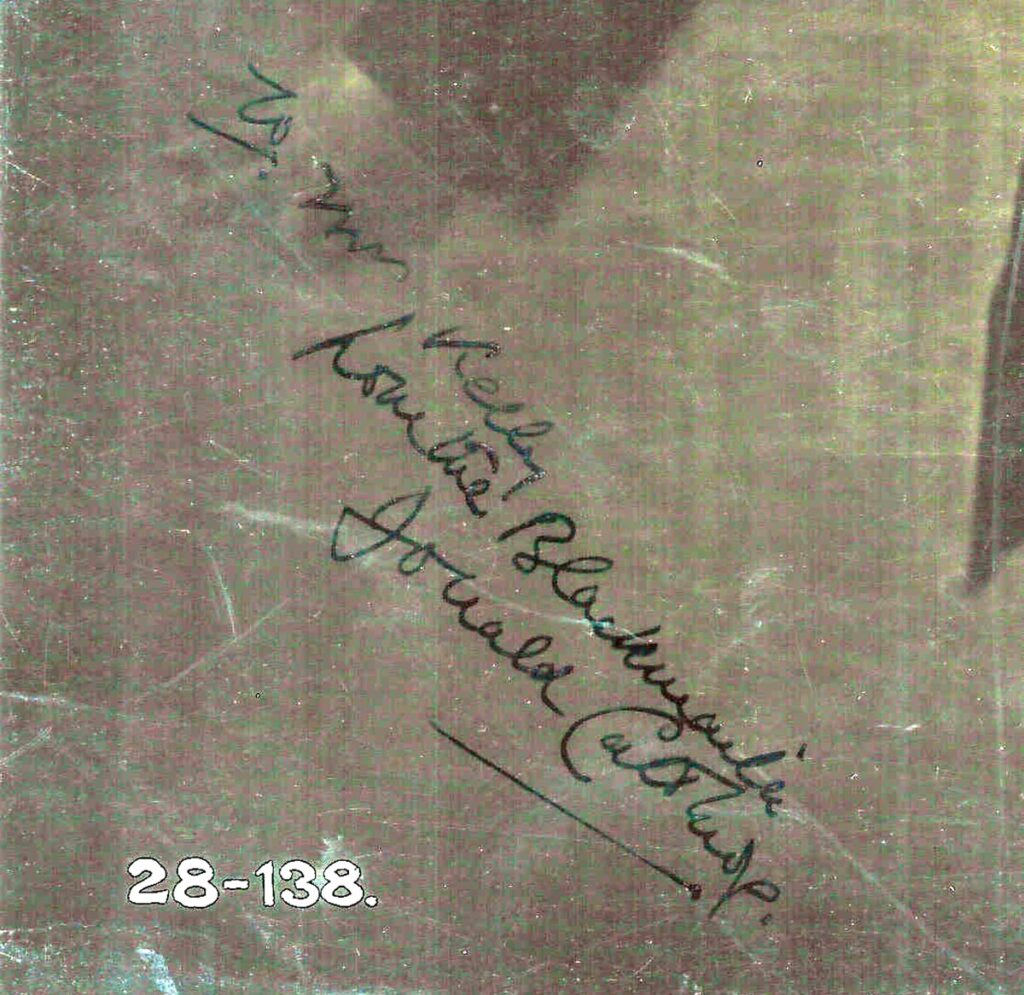 To. Mr Kelly
from the Blackmailer
Donald Calthrop.
28-138.